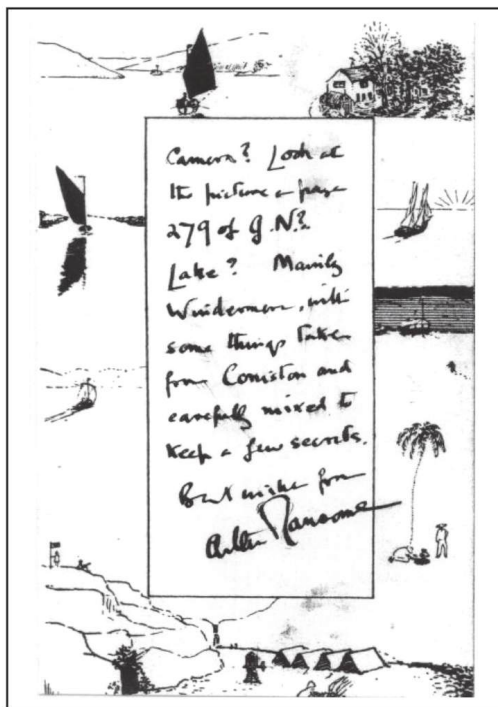 Camera? Look at
the picture on page
279 of G.N?
Lake? Mainly
Windermere, with
some things taken
from Coniston and
carefully mixed to
keep a few secrets.
Best wishes from
Arthur Ransome